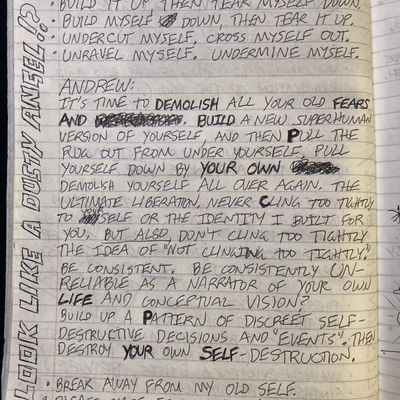 • BUILD IT UP, THEN TEAR MYSELF DOWN.
• BUILD MYSELF DOWN, THEN TEAR IT UP.
• UNDERCUT MYSELF. CROSS MYSELF OUT.
• UNRAVEL MYSELF. UNDERMINE MYSELF.
ANDREW:
IT'S TIME TO DEMOLISH ALL YOUR OLD FEARS
AND BUILD A NEW SUPERHUMAN
VERSION OF YOURSELF, AND THEN PULL THE
RUG OUT FROM UNDER YOURSELF, PULL
YOURSELF DOWN BY YOUR OWN
DEMOLISH YOURSELF ALL OVER AGAIN. THE
ULTIMATE LIBERATION, NEVER CLING TOO TIGHTLY
TO SELF OR THE IDENTITY I BUILT FOR
YOU, BUT ALSO, DON'T CLING TOO TIGHTLY
THE IDEA OF "NOT CLINGING TOO TIGHTLY."
BE CONSISTENT. BE CONSISTENTLY UN-
RELIABLE AS A NARRATOR OF YOUR OWN
LIFE AND CONCEPTUAL VISION?
BUILD UP A PATTERN OF DISCREET SELF-
DESTRUCTIVE DECISIONS AND "EVENTS". THEN
DESTROY YOUR OWN SELF-DESTRUCTION.
• BREAK AWAY FROM MY OLD SELF.
LOOK LIKE A DUSTY ANGEL!?